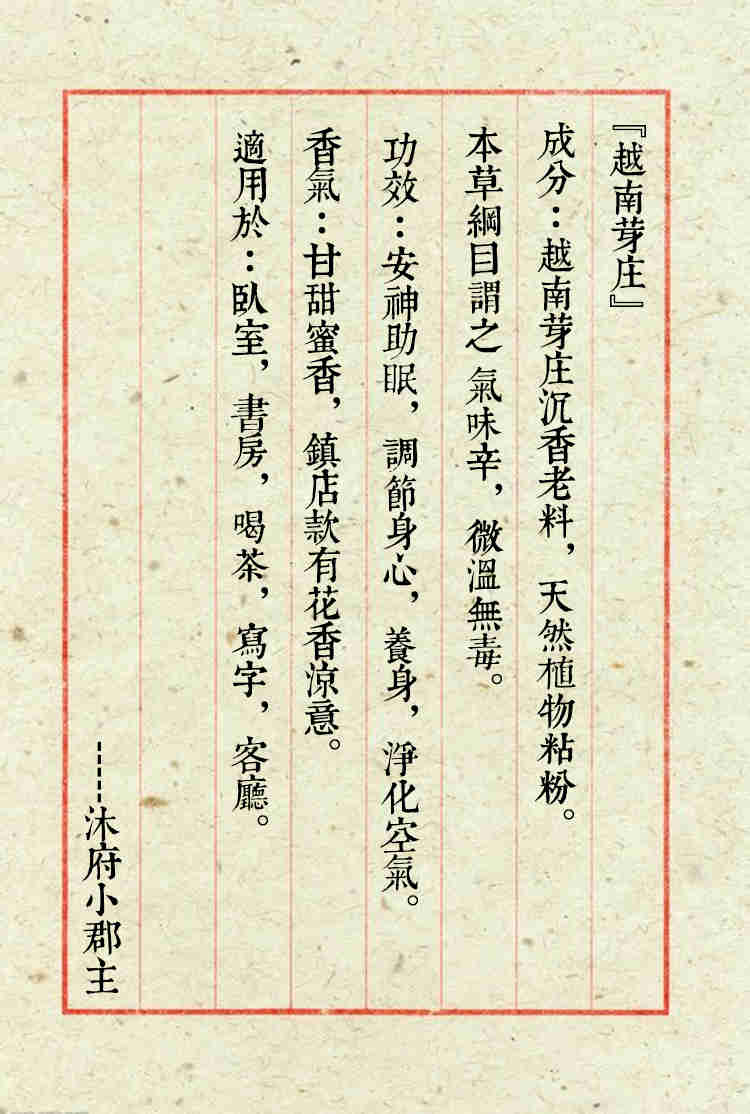 『越南芽庄』
成分：越南芽庄沉香老料，天然植物粘粉。
本草綱目謂之 氣味辛，微溫無毒。
功效：安神助眠，調節身心，養身，淨化空氣。
香氣：甘甜蜜香，鎮店款有花香涼意。
適用於：臥室，書房，喝茶，寫字，客廳。
-----沐府小郡主